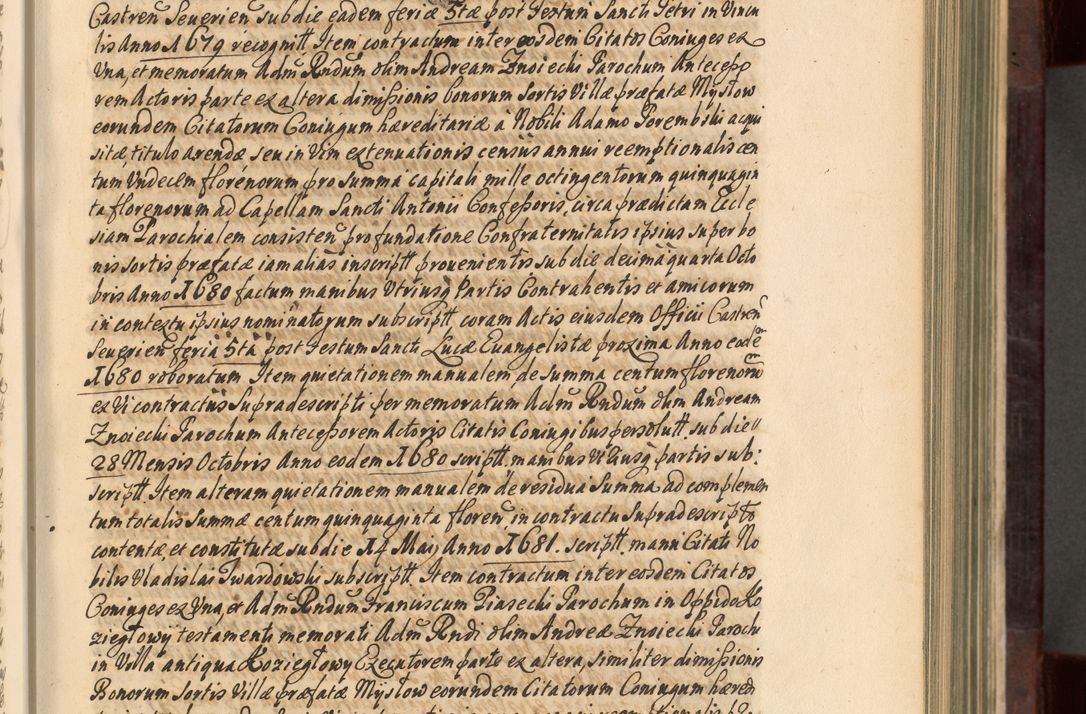 Castren̄ Severien̄ sub die eadem feriæ 5tæ post Festum Sancti Petri in Vincu
lis Anno 1679 recognitt. Item contractum inter eosdem Citatos Coniuges ex
Una, et memoratum Adm̄ Rndum olim Andream Znoiecki Parochum Antecesso
rem Actoris parte ex altera dimissionis bonorum Sortis Villæ præfatæ Mysłow
eorundem Citatorum Coniugum hæreditariæ à Nobili Adamo Porembski acqui
sitæ, titulo arendæ seu in vim extenuationis censûs annui reemptionalis cen
tum Undecem florenorum pro summa capitali mille octingentorum quinquagin
ta florenorum ad Capellam Sancti Antonii Confessoris, circa prædictam Eccle
siam Parochialem consisten̄ pro fundatione Confraternitatis ipsius super bo
nis sortis præfatæ iam aliàs inscriptt provenientis sub die decimâ quarta Octo
bris Anno 1680 factum manibus Utriusq̨ Partis Contrahentis et amicorum
in contextu ipsius nominatorum subscriptt, coram Actis eiusdem Officii Castren̄
Severien̄ feriâ 5tâ post Festum Sancti Lucæ Evangelistæ proxima Anno eodem
1680 roboratum Item quietationem manualem, de Summa centum florenorū
ex Vi contractûs Supradescripti per memoratum Adm̄ Rndum olim Andream
Znoiecki Parochum Antecessorem Actoris Citatis Coniugibus persolutt. sub die
28 Mensis Octobris Anno eodem 1680 scriptt. manibus Utriusq̨ partis sub:
scriptt. Item alteram quietationem manualem de residua Summa, ad complemen
tum totalis Summæ centum quinquaginta floren̄, in contractu Supradescripto
contentæ, et constitutæ sub die 14 Maij Anno 1681. scriptt. manu Citati No
bilis Vladislai Twardowski subscriptt. Item contractum inter eosdem Citatos
Coniuges ex Una, et Adm̄ Rndum Franciscum Piasecki Parochum in Oppido Ko
ziegłowy testamenti memorati Adm̄ Rndi olim Andreæ Znoiecki Parochi
in Villa antiqua Koziegłowy Executorem parte ex altera, similiter dimissionis
Bonorum Sortis Villæ præfatæ Mysłow eorundem Citatorum Coniugum hæred